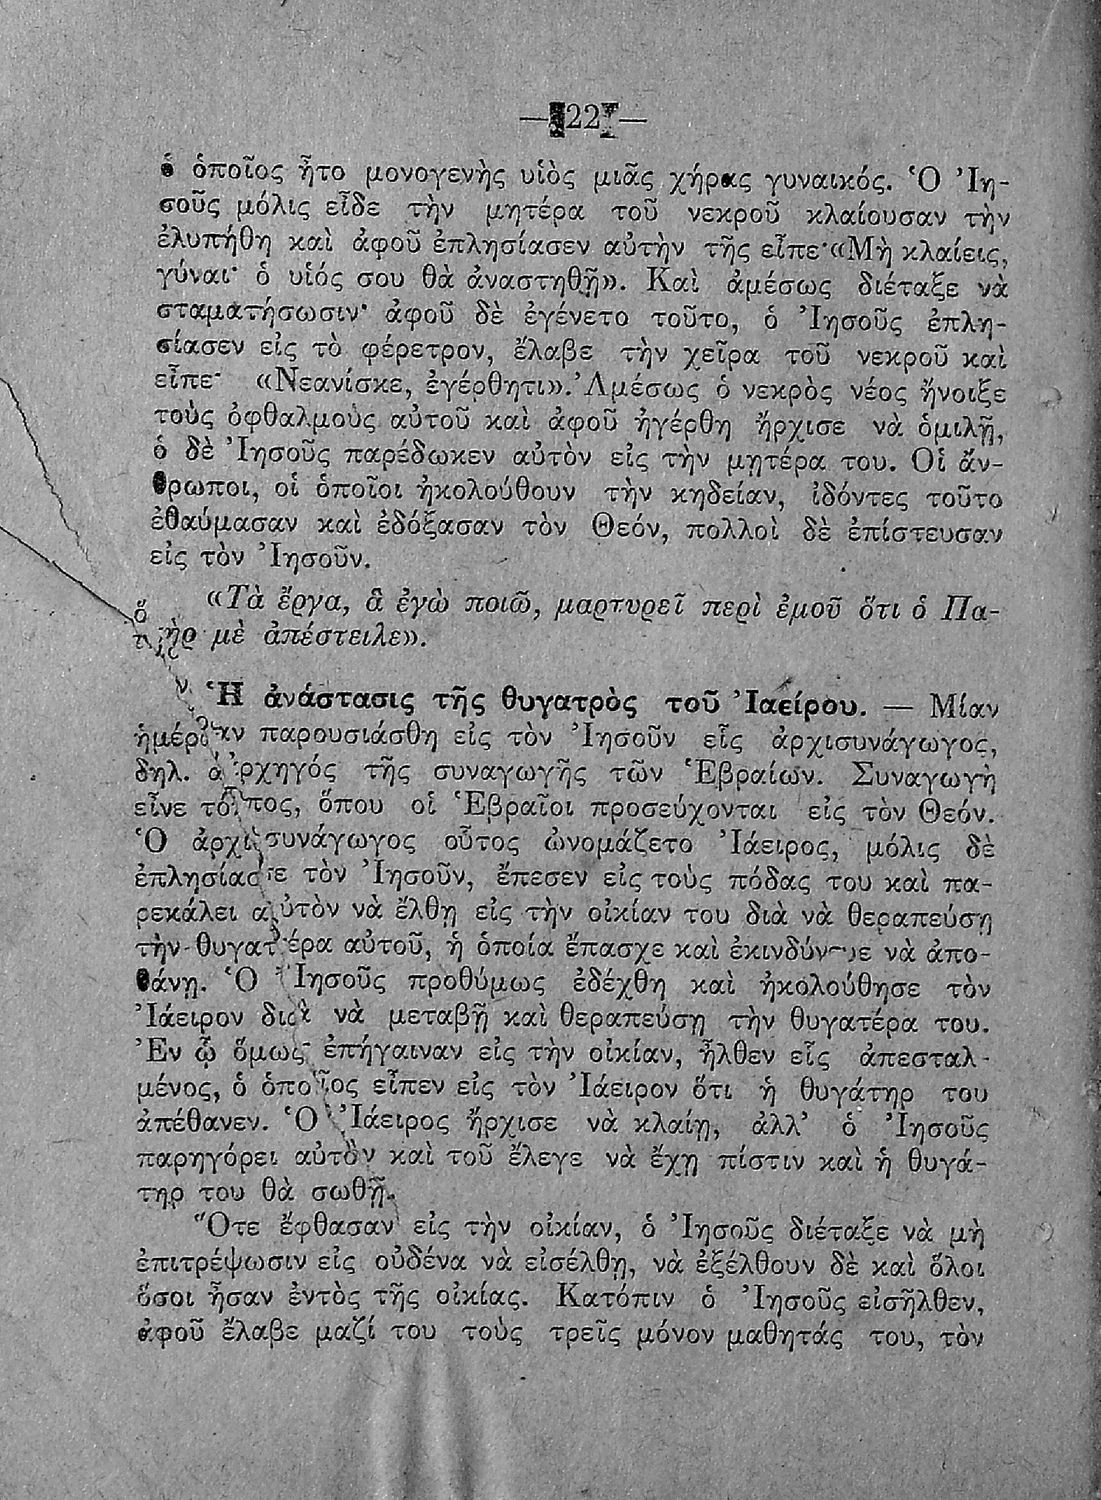 — 22 —
ὁ ὁποῖος ἦτο μονογενὴς υἱὸς μιᾶς χήρας γυναικός. Ὁ Ἰη-
σοῦς μόλις εἶδε τὴν μητέρα τοῦ νεκροῦ κλαίουσαν τὴν
ἐλυπήθη καὶ ἀφοῦ ἐπλησίασεν αὐτὴν τῆς εἶπε·«Μὴ κλαίεις,
γύναι· ὁ υἱός σου θὰ ἀναστηθῇ». Καὶ ἀμέσως διέταξε νὰ
σταματήσωσιν· ἀφοῦ δὲ ἐγένετο τοῦτο, ὁ Ἰησοῦς ἐπλη-
σίασεν εἰς τὸ φέρετρον, ἔλαβε τὴν χεῖρα τοῦ νεκροῦ καὶ
εἶπε· «Νεανίσκε, ἐγέρθητι». Ἀμέσως ὁ νεκρὸς νέος ἤνοιξε
τοὺς ὀφθαλμοὺς αὐτοῦ καὶ ἀφοῦ ἠγέρθη ἤρχισε νὰ ὁμιλῇ,
ὁ δὲ Ἰησοῦς παρέδωκεν αὐτὸν εἰς τὴν μητέρα του. Οἱ ἄν-
θρωποι, οἱ ὁποῖοι ἠκολούθουν τὴν κηδείαν, ἰδόντες τοῦτο
ἐθαύμασαν καὶ ἐδόξασαν τὸν Θεόν, πολλοὶ δὲ ἐπίστευσαν
εἰς τὸν Ἰησοῦν.
«Τὰ ἔργα, ἃ ἐγὼ ποιῶ, μαρτυρεῖ περὶ ἐμοῦ ὅτι ὁ Πα-
τὴρ μὲ ἀπέστειλε».
Ἡ ἀνάστασις τῆς θυγατρὸς τοῦ Ἰαείρου. — Μίαν
ἡμέραν παρουσιάσθη εἰς τὸν Ἰησοῦν εἷς ἀρχισυνάγωγος,
δηλ. ἀρχηγός τῆς συναγωγῆς τῶν Ἑβραίων. Συναγωγὴ
εἶνε τόπος, ὅπου οἱ Ἑβραῖοι προσεύχονται εἰς τὸν Θεόν.
Ὁ ἀρχισυνάγωγος οὗτος ὠνομάζετο Ἰάειρος, μόλις δὲ
ἐπλησίασε τὸν Ἰησοῦν, ἔπεσεν εἰς τοὺς πόδας του καὶ πα-
ρεκάλει αὐτὸν νὰ ἔλθῃ εἰς τὴν οἰκίαν του διὰ νὰ θεραπεύσῃ
τὴν θυγατέρα αὐτοῦ, ἡ ὁποία ἔπασχε καὶ ἐκινδύνευε νὰ ἀπο-
θάνῃ. Ὁ Ἰησοῦς προθύμως ἐδέχθη καὶ ἠκολούθησε τὸν
Ἰάειρον διὰ νὰ μεταβῇ καὶ θεραπεύσῃ τὴν θυγατέρα του.
Ἐν ᾧ ὅμως ἐπήγαιναν εἰς τὴν οἰκίαν, ἦλθεν εἷς ἀπεσταλ-
μένος, ὁ ὁποῖος εἶπεν εἰς τὸν Ἰάειρον ὅτι ἡ θυγάτηρ του
ἀπέθανεν. Ὁ Ἰάειρος ἤρχισε νὰ κλαίῃ, ἀλλ' ὁ Ἰησοῦς
παρηγόρει αὐτὸν καὶ τοῦ ἔλεγε νὰ ἔχῃ πίστιν καὶ ἡ θυγά-
τηρ του θὰ σωθῇ.
Ὅτε ἔφθασαν εἰς τὴν οἰκίαν, ὁ Ἰησοῦς διέταξε νὰ μὴ
ἐπιτρέψωσιν εἰς οὐδένα νὰ εἰσέλθῃ, νὰ ἐξέλθουν δὲ καὶ ὅλοι
ὅσοι ἦσαν ἐντὸς τῆς οἰκίας. Κατόπιν ὁ Ἰησοῦς εἰσῆλθεν,
ἀφοῦ ἔλαβε μαζί του τοὺς τρεῖς μόνον μαθητάς του, τὸν